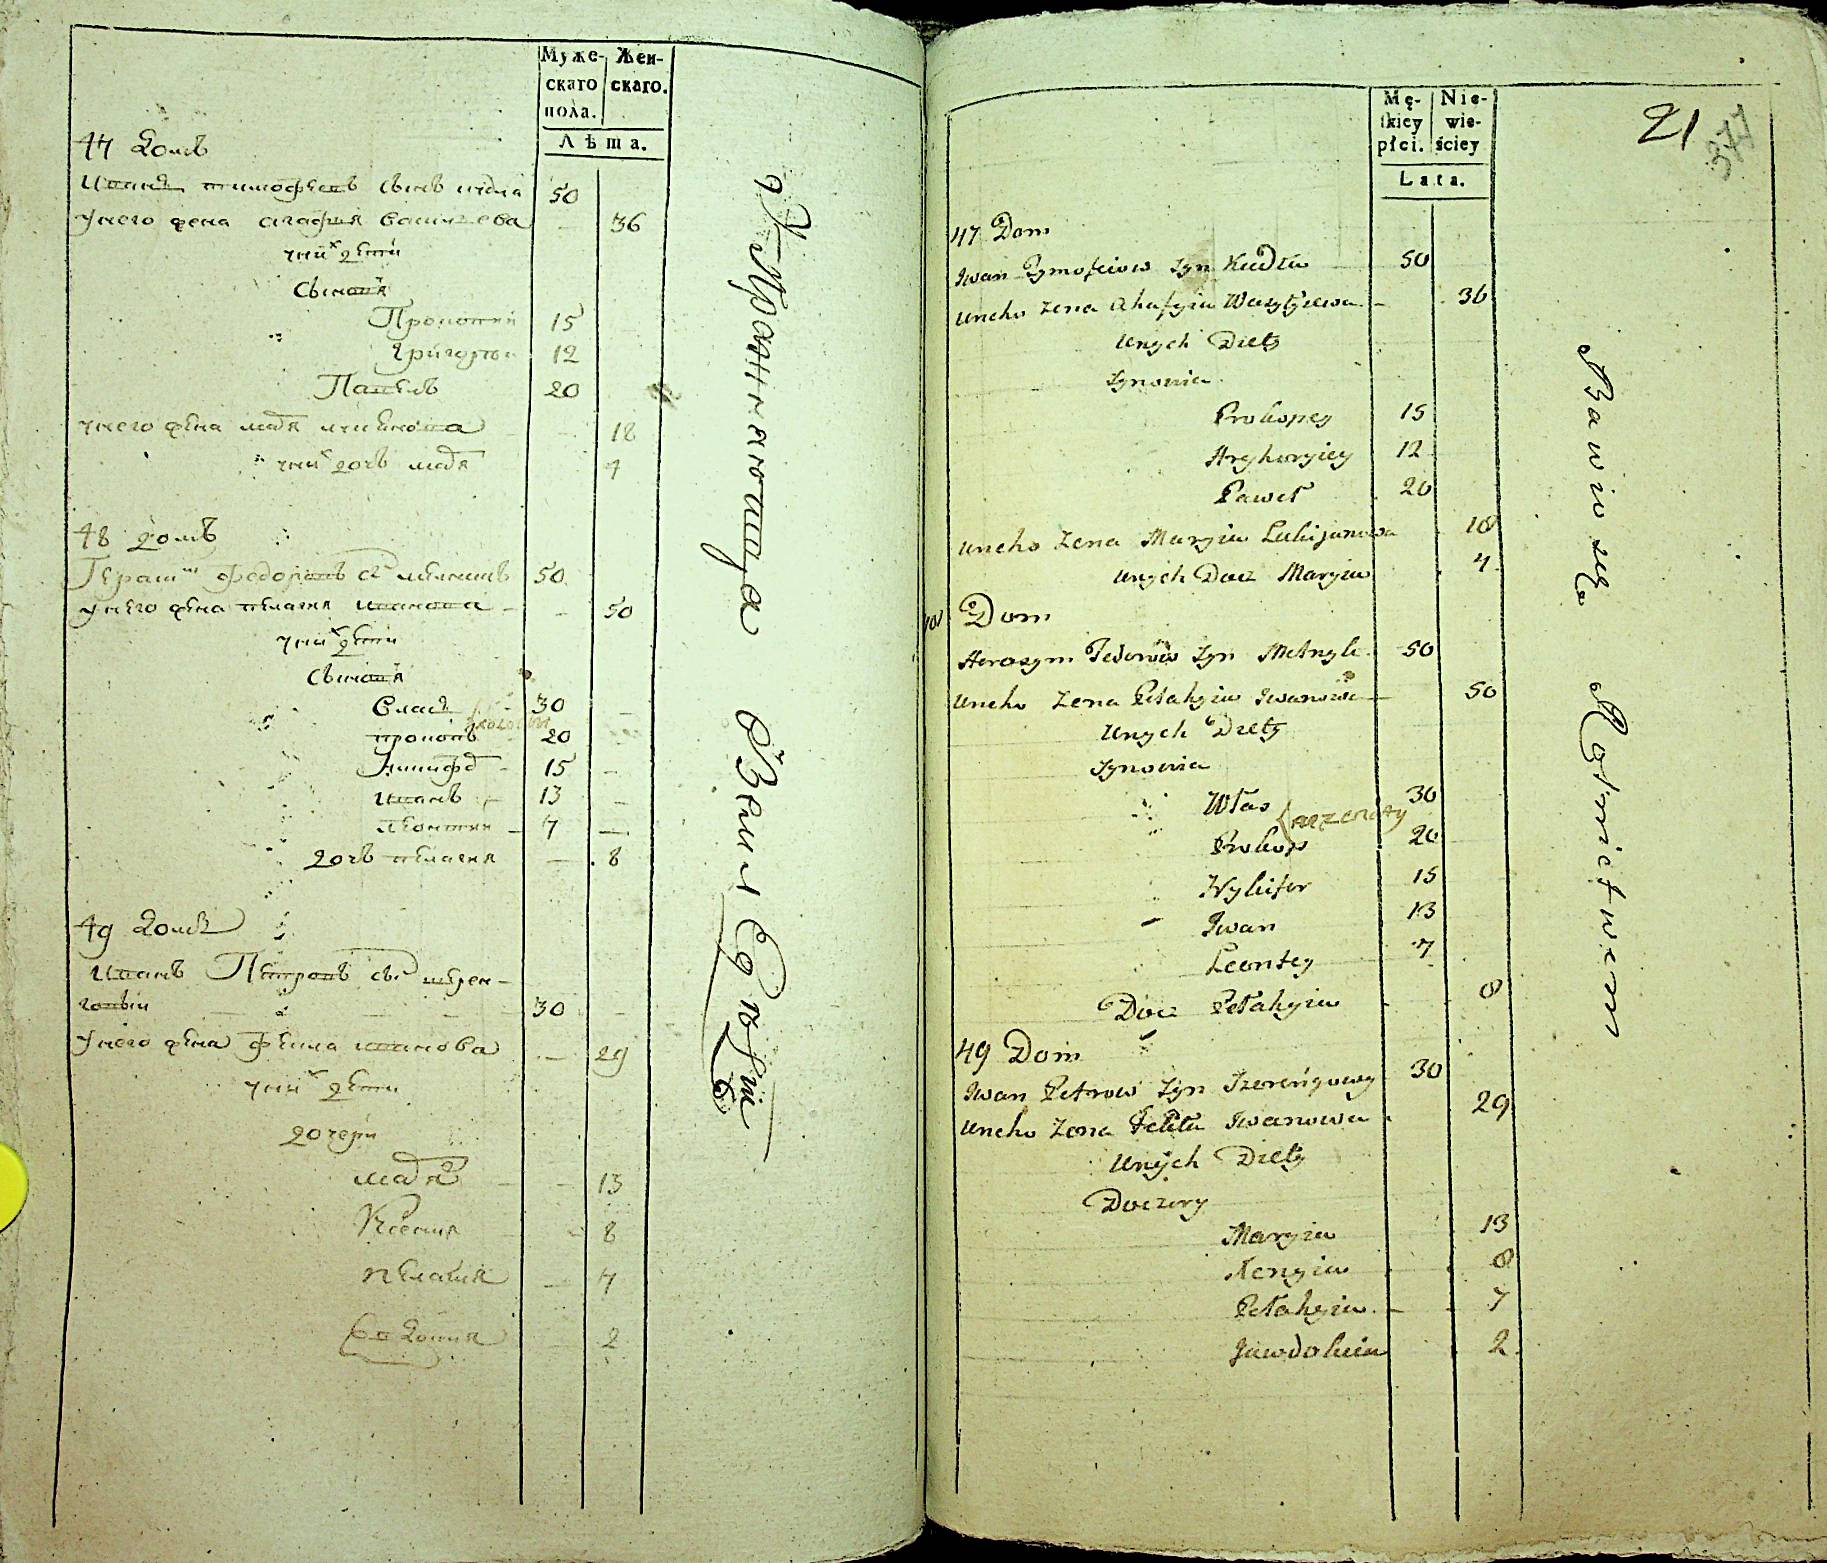 Муже-
скаго
пола.
Жен-
скаго.
Лѣта.
47 Домъ
Иванъ тимофеевъ сынъ
50
Унего жена агафия василева
36
уних дети
Сыновя
Прокопий 15
Григорей 12
Павелъ 20
унего жена
18
уних дочъ
4
48 домъ
Герасим федоровъ
50
Унего жена пелагия иванова
50
уних дети
Сыновя
Власъ 30
прокопъ 20
Никифор 15
иванъ 13
леонтии 7
дочъ пелагия 8
49 Домъ
Иванъ Петровъ сы шерен-
говыи 30
Унего жена фекла иванова 29
уних дети
дочери
13
Ксения 8
пелагия 7
Евдокия 2
Занимаются
Земледелием
Mę-
skiey
płci.
Nie-
wie-
ściey
Lata.
21
377
47 Dom
Iwan Tymofeiow Syn Kudła 50
Uneho Żena Ahafyia Wasylewa 36
Unych Diety
Synowia
Prokopey 15
Hryhoryiey 12
Paweł 20
Uneho Żena Maryia Łukijanowa 18
Unych Docz Maryia 4
Dom
Herasym Fedorow Syn Melnyk 50
Uneho Żena Pełahyia Iwanowa 50
Unych Diety
Synowia
Włas 30
Prokop 20
Nykifor 15
Iwan 13
Leontey 7
Docz Pełahyia 8
49 Dom
Iwan Petrow Syn Szerengowy 30
Uneho Żona Fekła Iwanowa 29
Unych Diety
Doczery
Maryia 13
Xenyia 8
Pełahyia 7
Jawdokia 2
Bawią się Rolnictwem